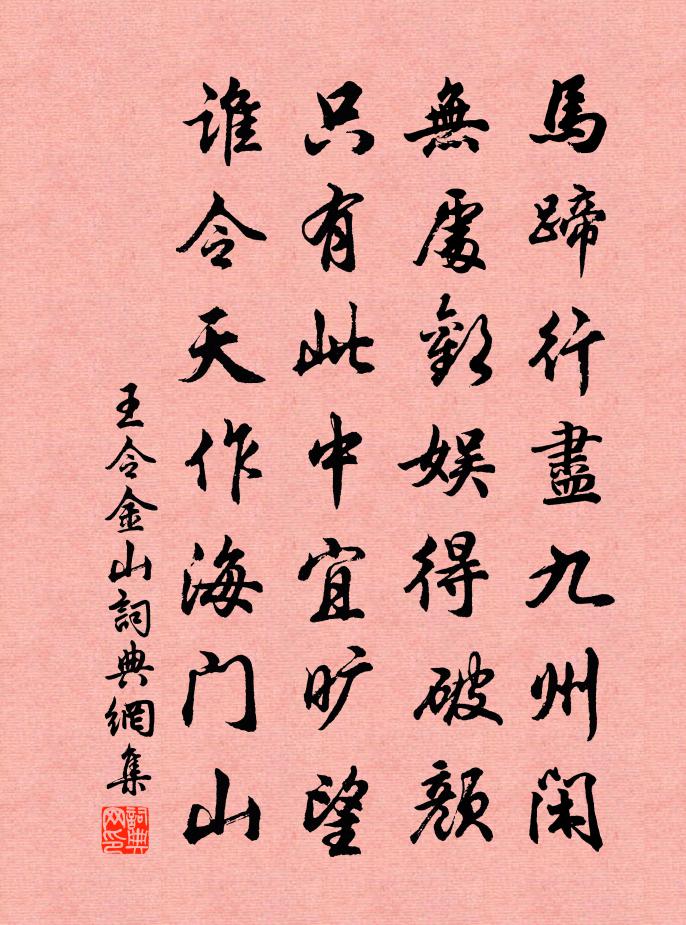 馬蹄行盡九州閑
無處歡娛得破顏
只有此中宜旷望
誰令天作海門山
王令金山詞典網集
詞典网印